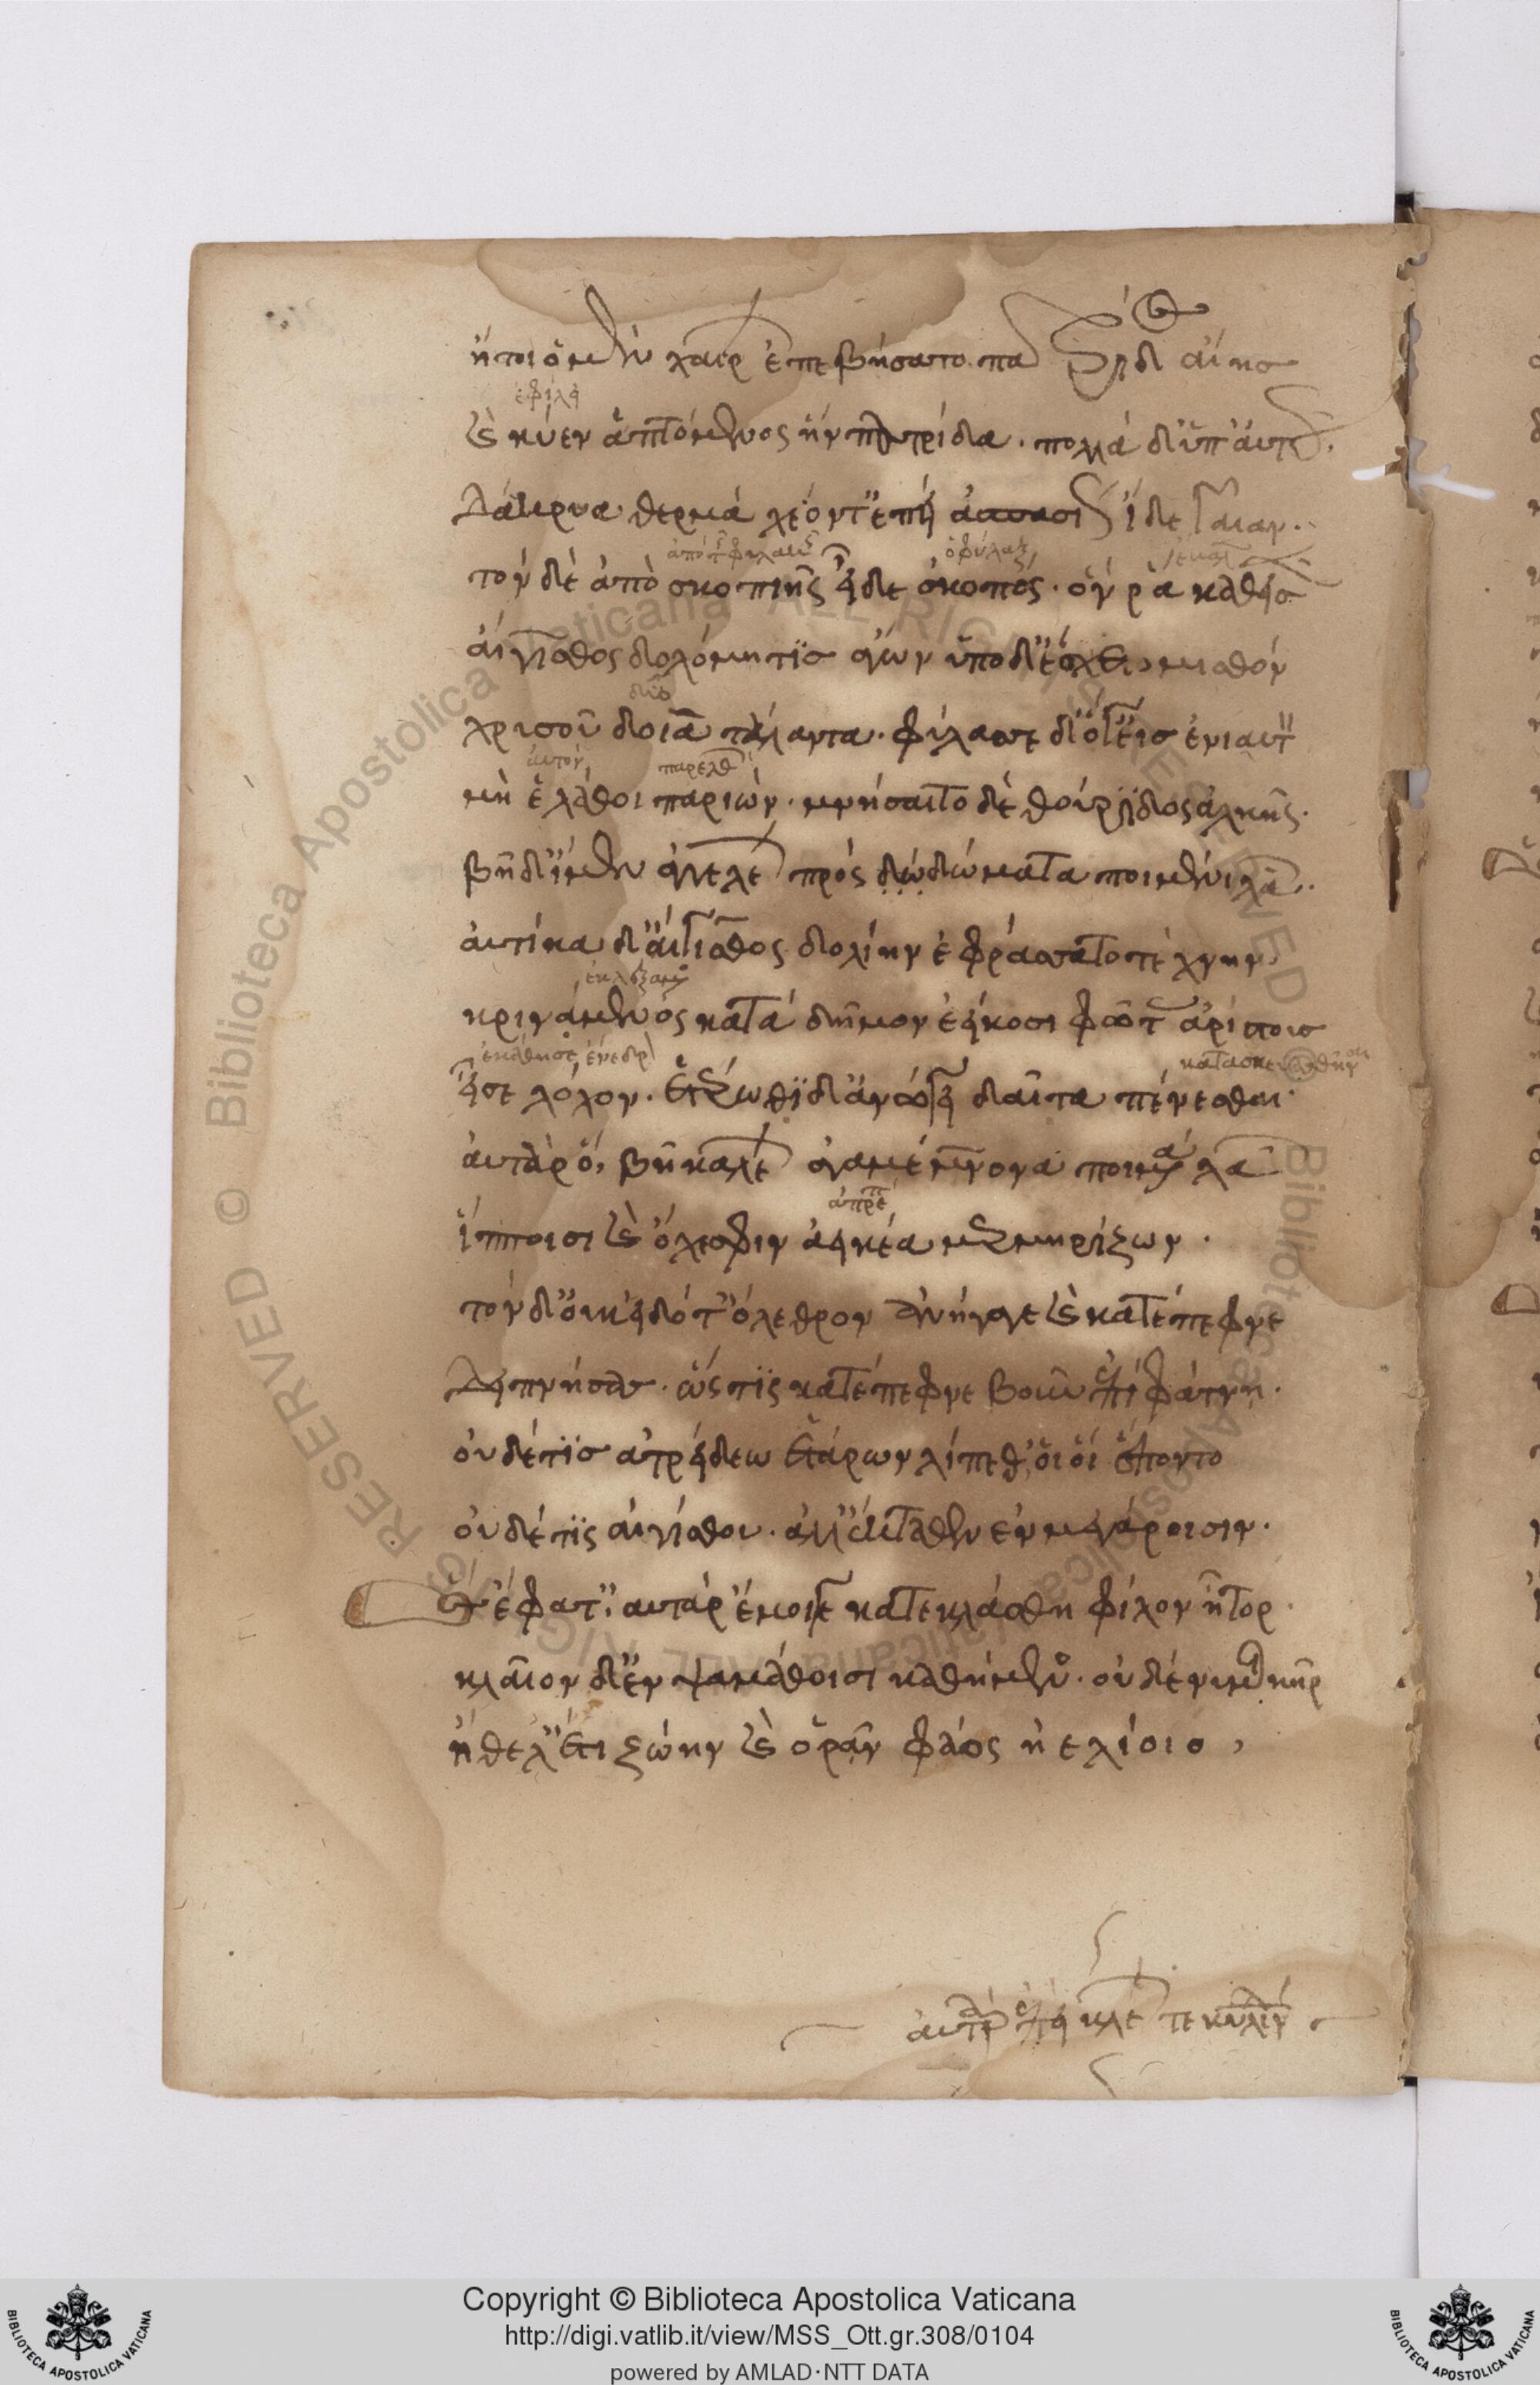 ήτοι ὁ μὲν χαίρων ἐπεβήσατο πατρίδος αἴης
ἐφίλει
καὶ κύνει ἁπτόμενος ἣν πατρίδα· πολλὰ δ' ἀπ' αὐτοῦ.
δάκρυα θερμὰ χέοντ' ἐπεὶ ἀσπασίως ἴδε γαῖαν.
ἀπὸ τῆς φυλακῆς ὁ φύλαξ
τὸν δὲ ἀπὸ σκοπιῆς εἶδε σκοπός· ὅν ῥα καθεῖσεν
αἴγισθος δολόμητις ἄγων ὑπὸ δ' ἔσχετο μισθὸν
δύο
χρυσοῦ δοιὰ τάλαντα· φύλασσε δ' ὅγ' εἰς ἐνιαυτὸν
αὐτὸν παρελθὼν
μὴ ἓ λάθοι παριών· μνήσαιτο δὲ θούριδος ἀλκῆς.
βῆ δ' ἴμεν ἀγγελέων πρὸς δώματα ποιμένι λαῶν.
αὐτίκα δ' αἴγισθος δολίην ἐφράσσατο τέχνην
ἐκλεξάμενος
κρινάμενος κατὰ δῆμον ἐείκοσι φῶτας ἀρίστους
εἷσε λόχον. ἑτέρωθι δ' ἀνώγει δαῖτα πένεσθαι·
αὐτὰρ ὁ, βῆ καλέων ἀγαμέμνονα ποιμένα λαῶν
ἀπρεπῆ
ἵπποισι καὶ ὄχεσφιν ἀεικέα μερμηρίζων.
τὸν δ' οὐκ εἰδότ' ὄλεθρον ἀνήγαγε καὶ κατέπεφνε
δειπνήσας· ὥς τίς κατέπεφνε βοῦν ἐπὶ φάτνῃ.
οὐδέ τις ἀτρείδεω ἑτάρων λίπεθ', οἵ οἱ ἕποντο
οὐδέ τις αἰγίσθου. ἀλλ' ἔκταθεν ἐν μεγάροισιν.
ὣς ἔφατ': αὐτὰρ ἔμοιγε κατεκλάσθη φίλον ἦτορ.
κλαῖον δ' ἐν ψαμάθοισι καθήμενος. οὐδέ νύ μοι κῆρ
ἤθελ' ἔτι ζώειν καὶ ὁρᾶν φάος ἠελίοιο,
αὐτὰρ ἐπεὶ κλαίων τε κυλιν
Copyright © Biblioteca Apostolica Vaticana
http://digi.vatlib.it/view/MSS_Ott.gr.308/0104
powered by AMLAD·NTT DATA